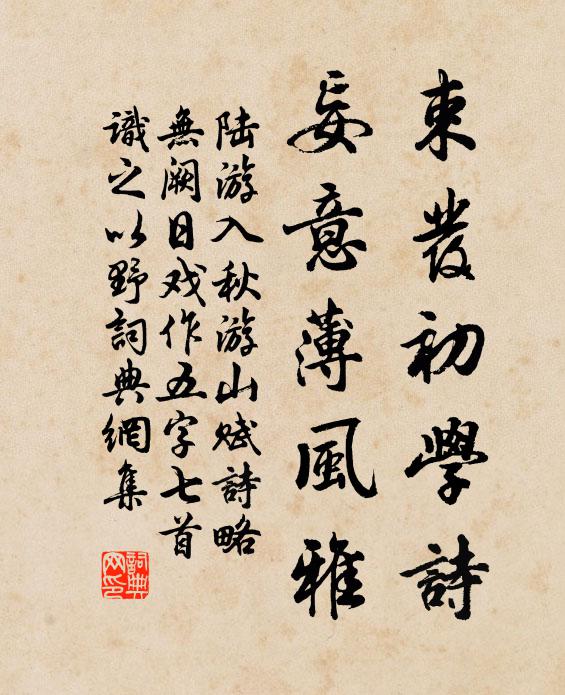 束發初學詩
妄意薄風雅
陆游入秋游山赋詩略
無阙日戏作五字七首
識之以野詞典網集
詞典网印